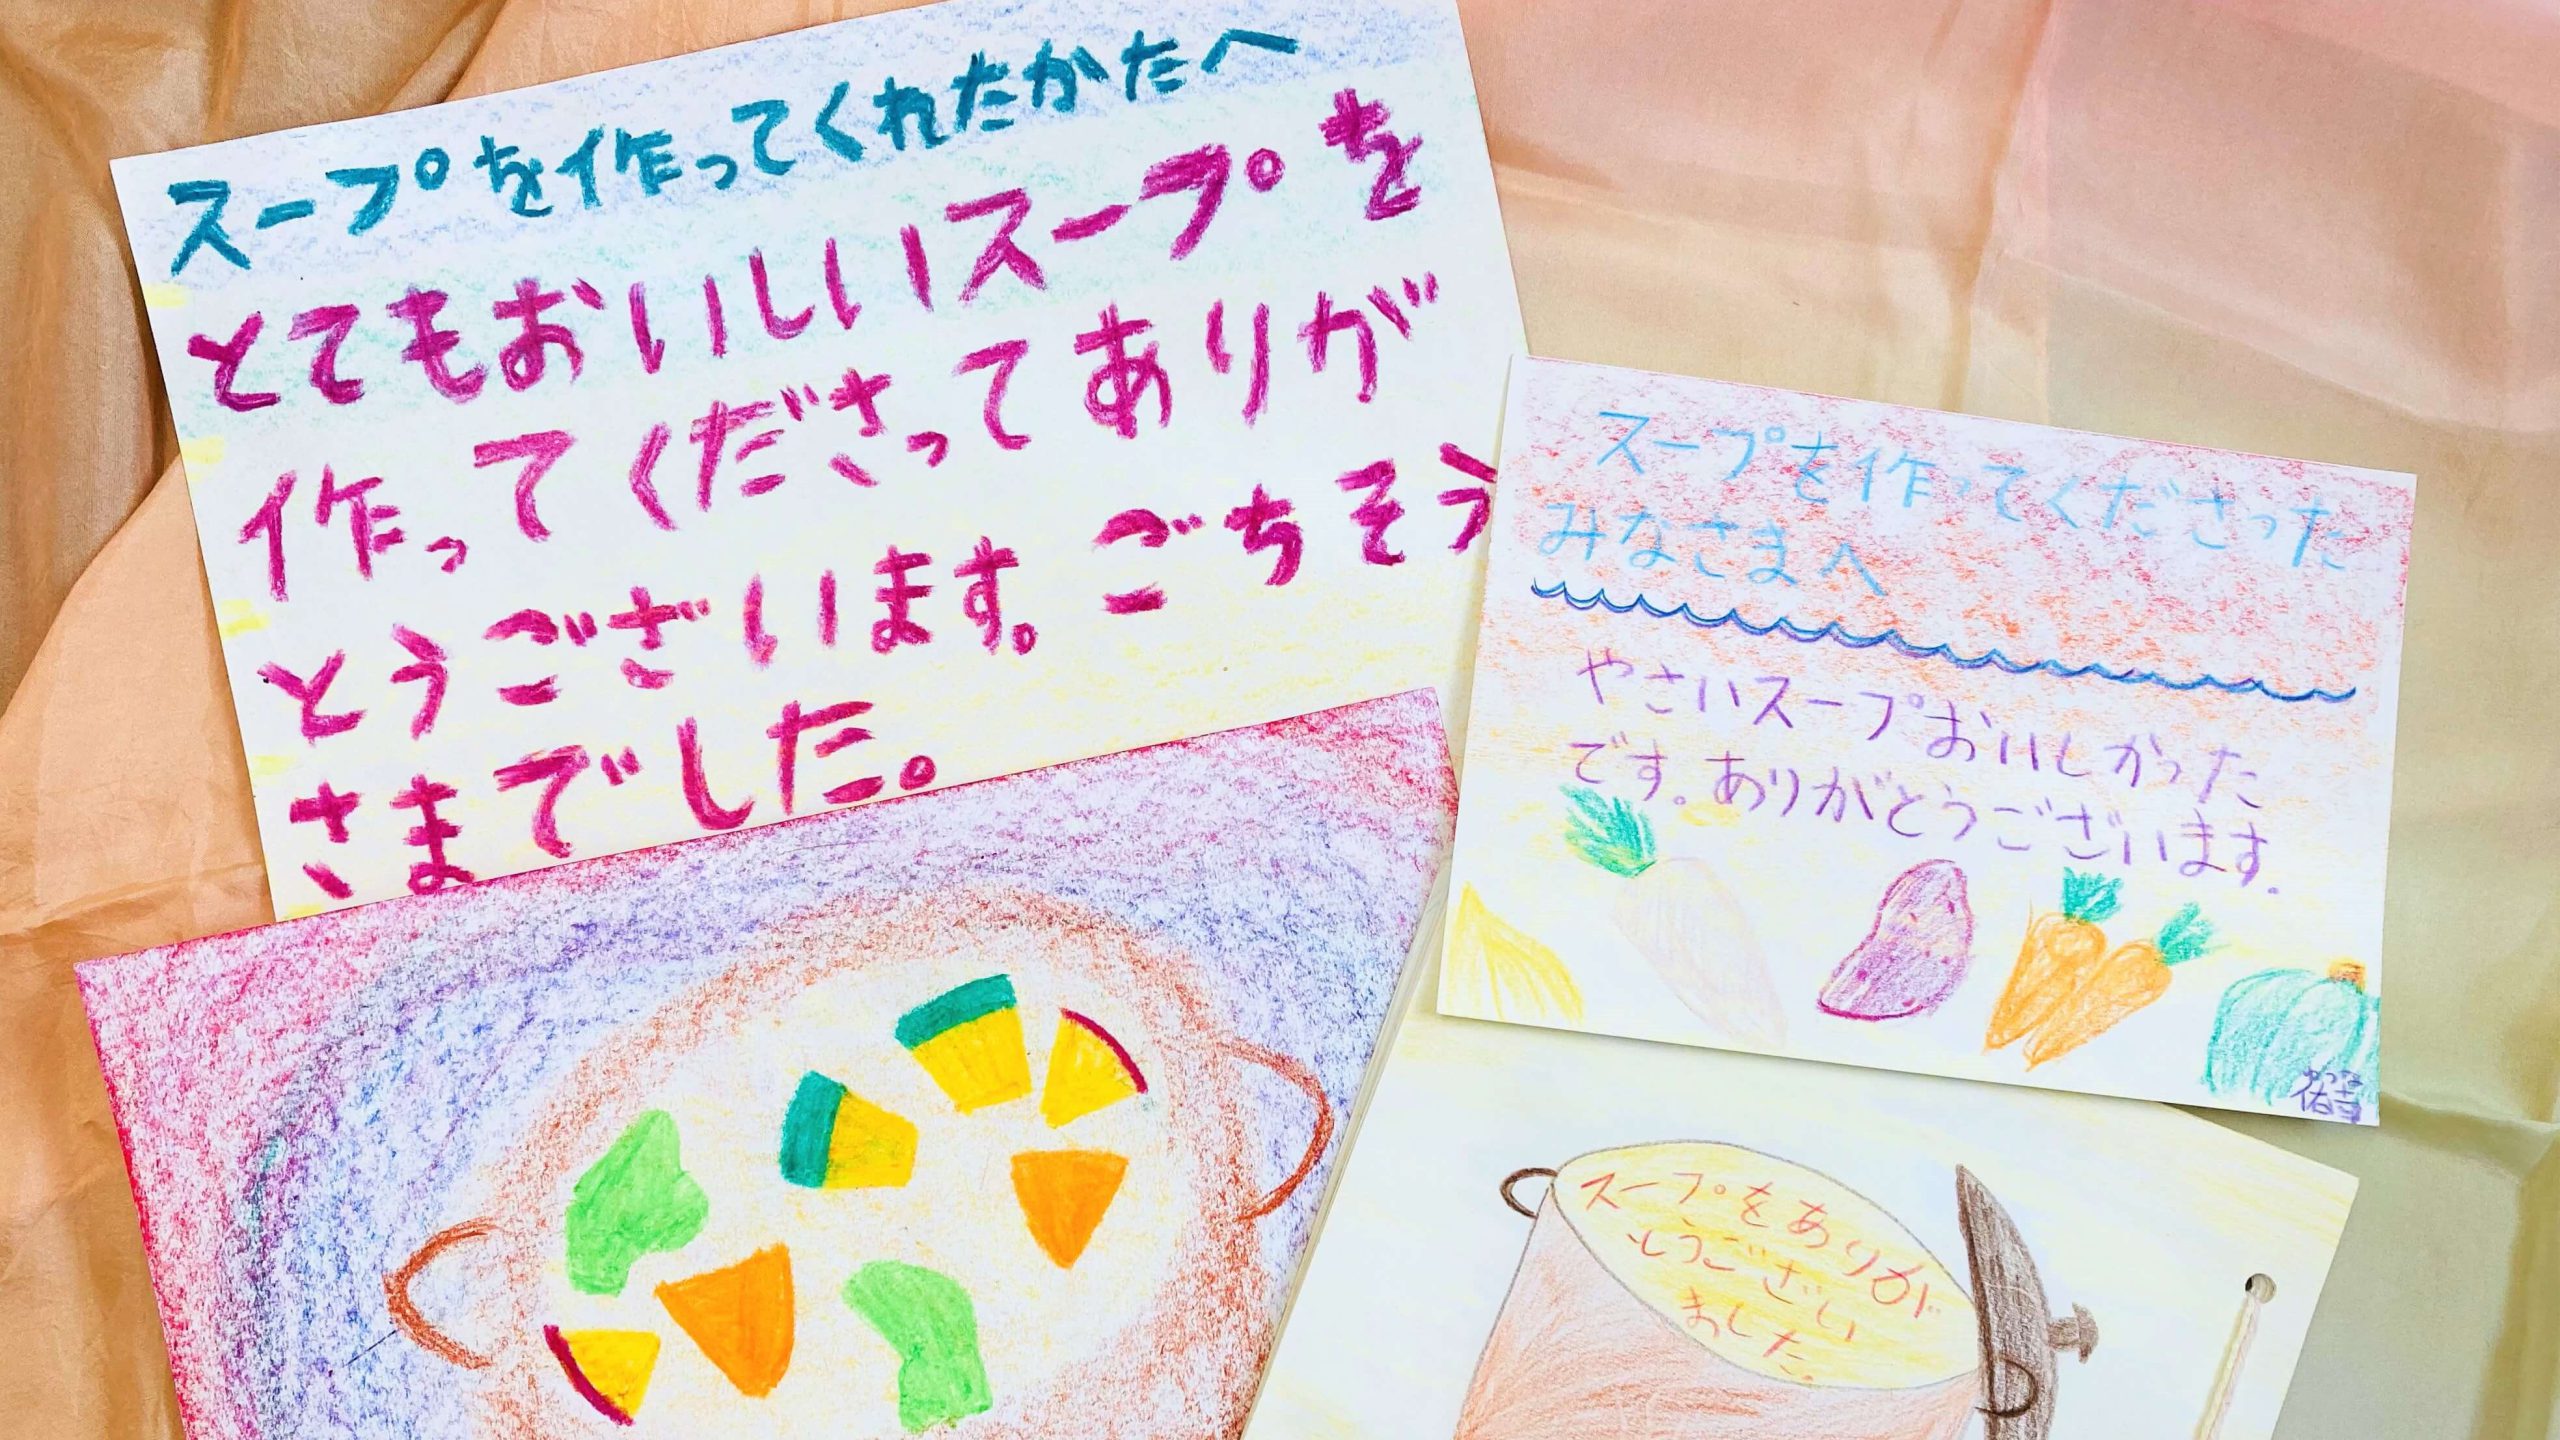 スープを作ってくれたかたへ
とてもおいしいスープを
作ってくださってありが
とうございます。ごちそう
さまでした。
スープを作ってくださった
みなさまへ
やさいスープおいしかった
です。ありがとうございます。
スープをありが
とうござい
ました。